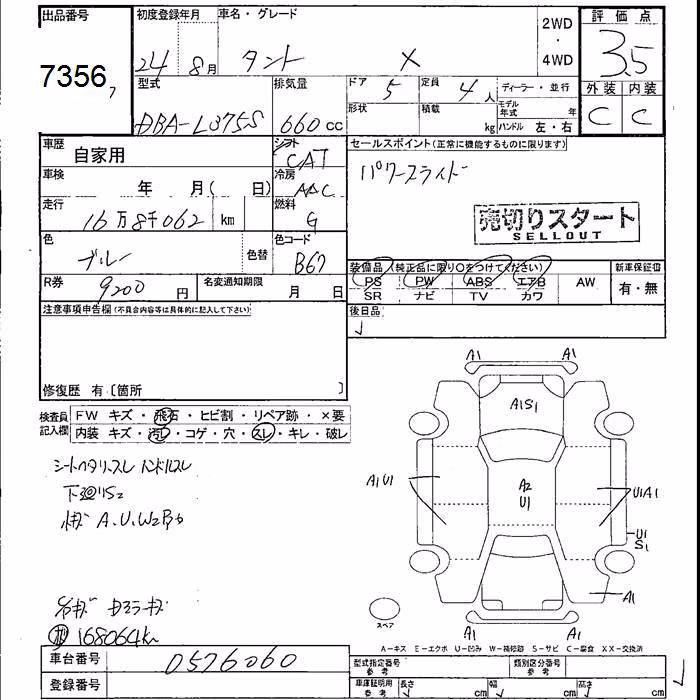 出品番号
7356
初度登録年月
24 8月
車名・グレード
タント X
2WD
・
4WD
評価点
3.5
外装 内装
C C
型式
DBA-L375S
排気量
660 cc
ドア 5
定員 4人
ディーラー・並行
形状
積載 kg
モデル年式 年
ハンドル 左・右
車歴
自家用
シフト
CAT
セールスポイント(正常に機能するものに限ります)
パワースライド
車検
年 月( 日)
冷房
AAC
走行
16万8千062 km
燃料
G
売切りスタート
SELLOUT
色
ブルー
色替
色コード
B67
装備品 (純正品に限り○をつけてください)
PS PW ABS エアB AW
SR ナビ TV カワ
新車保証書
有・無
R券
9200 円
名変通知期限
月 日
注意事項申告欄(不具合内容等は具体的に記入して下さい)
後日品
修復歴 有〔箇所 〕
検査員記入欄
FW キズ・飛石・ヒビ割・リペア跡・×要
内装 キズ・汚レ・コゲ・穴・スレ・キレ・破レ
シートヘタリ、スレ ハンドルスレ
下廻りS2
A.U.W2
168064km
A1 A1
A1S1
A1U1
A2
U1
U1A1
U1
S1
A1
A1 A1
スペア
A－キズ E－エクボ U－凹み W－補修跡 S－サビ C－腐食 XX－交換済
車台番号
0576060
登録番号
型式指定番号
参考
類別区分番号
参考
車庫証明用
参考
長さ cm
幅 cm
高さ cm